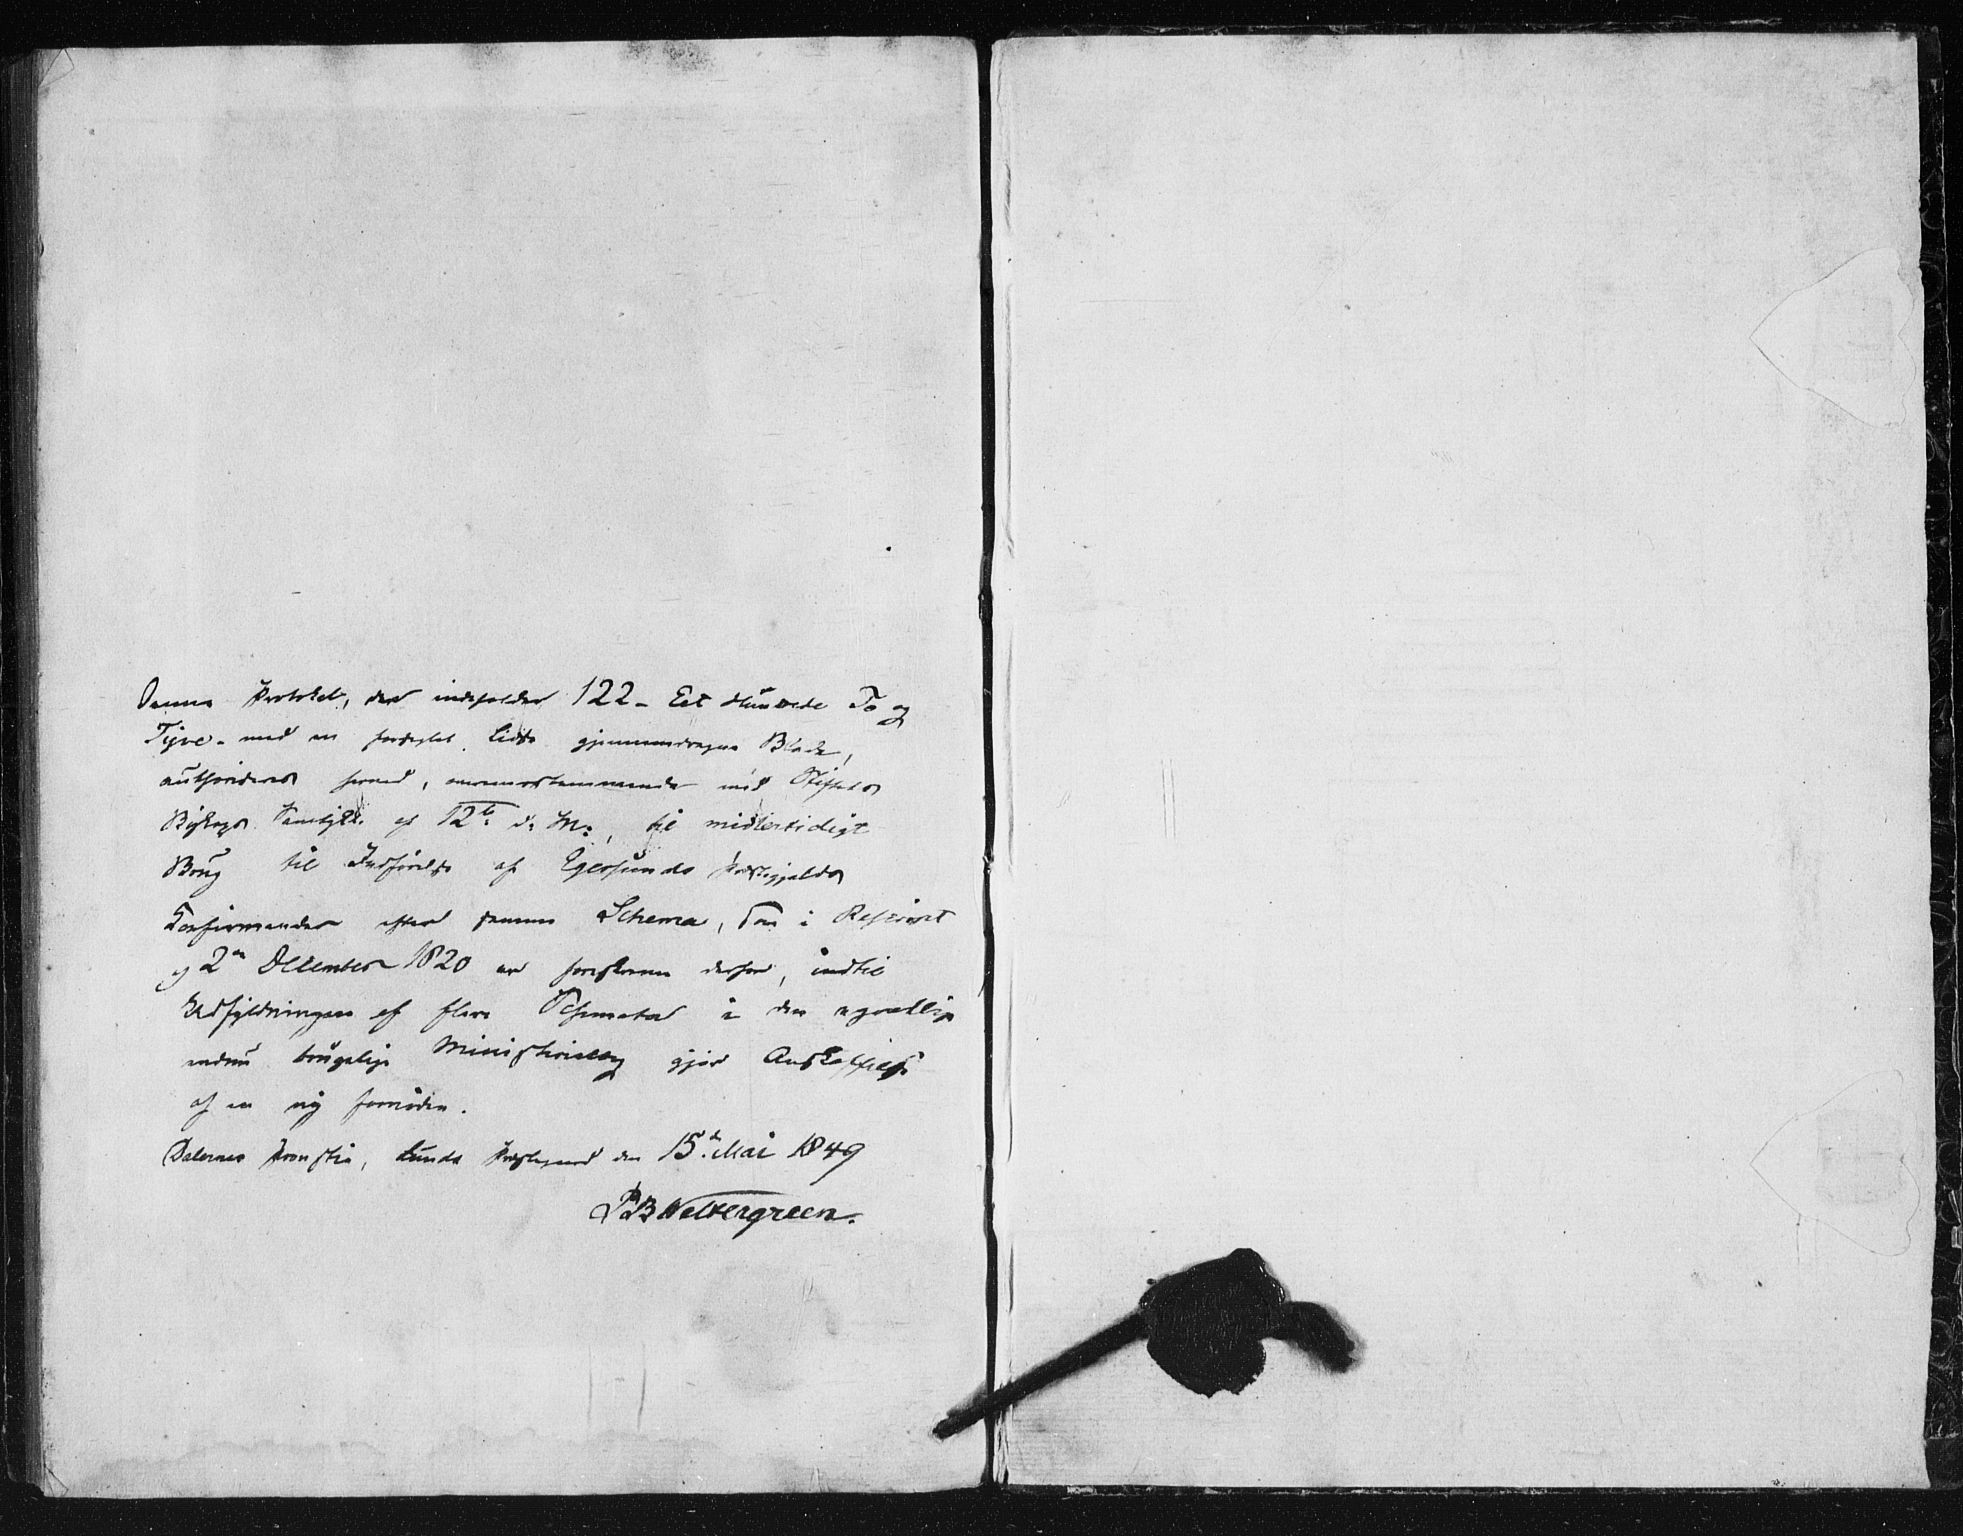 Denne Protokol, der indeholder 122 - Eet Hundrede To og
Tyve - med en forseglet Lidse gjennemdragne Blade,
authoriseres herved, overensstemmende med Stiftets
Biskops Samtykke af 12te d: M:, til midlertidigt
Brug til Indførelse af Egersunds Præstegjelds
Confirmander efter samme Schema, som i Rescript
af 2en December 1820 er foreskrevne derfor, indtil
Udfyldningen af flere Schemata i den egentlige
endnu brugelige Ministerialbog gjør Anskaffelse
af en ny fornøden.
Dalernes Provstie, Lunds Præstegaard den 15de Mai 1849
PB Weltergreen.